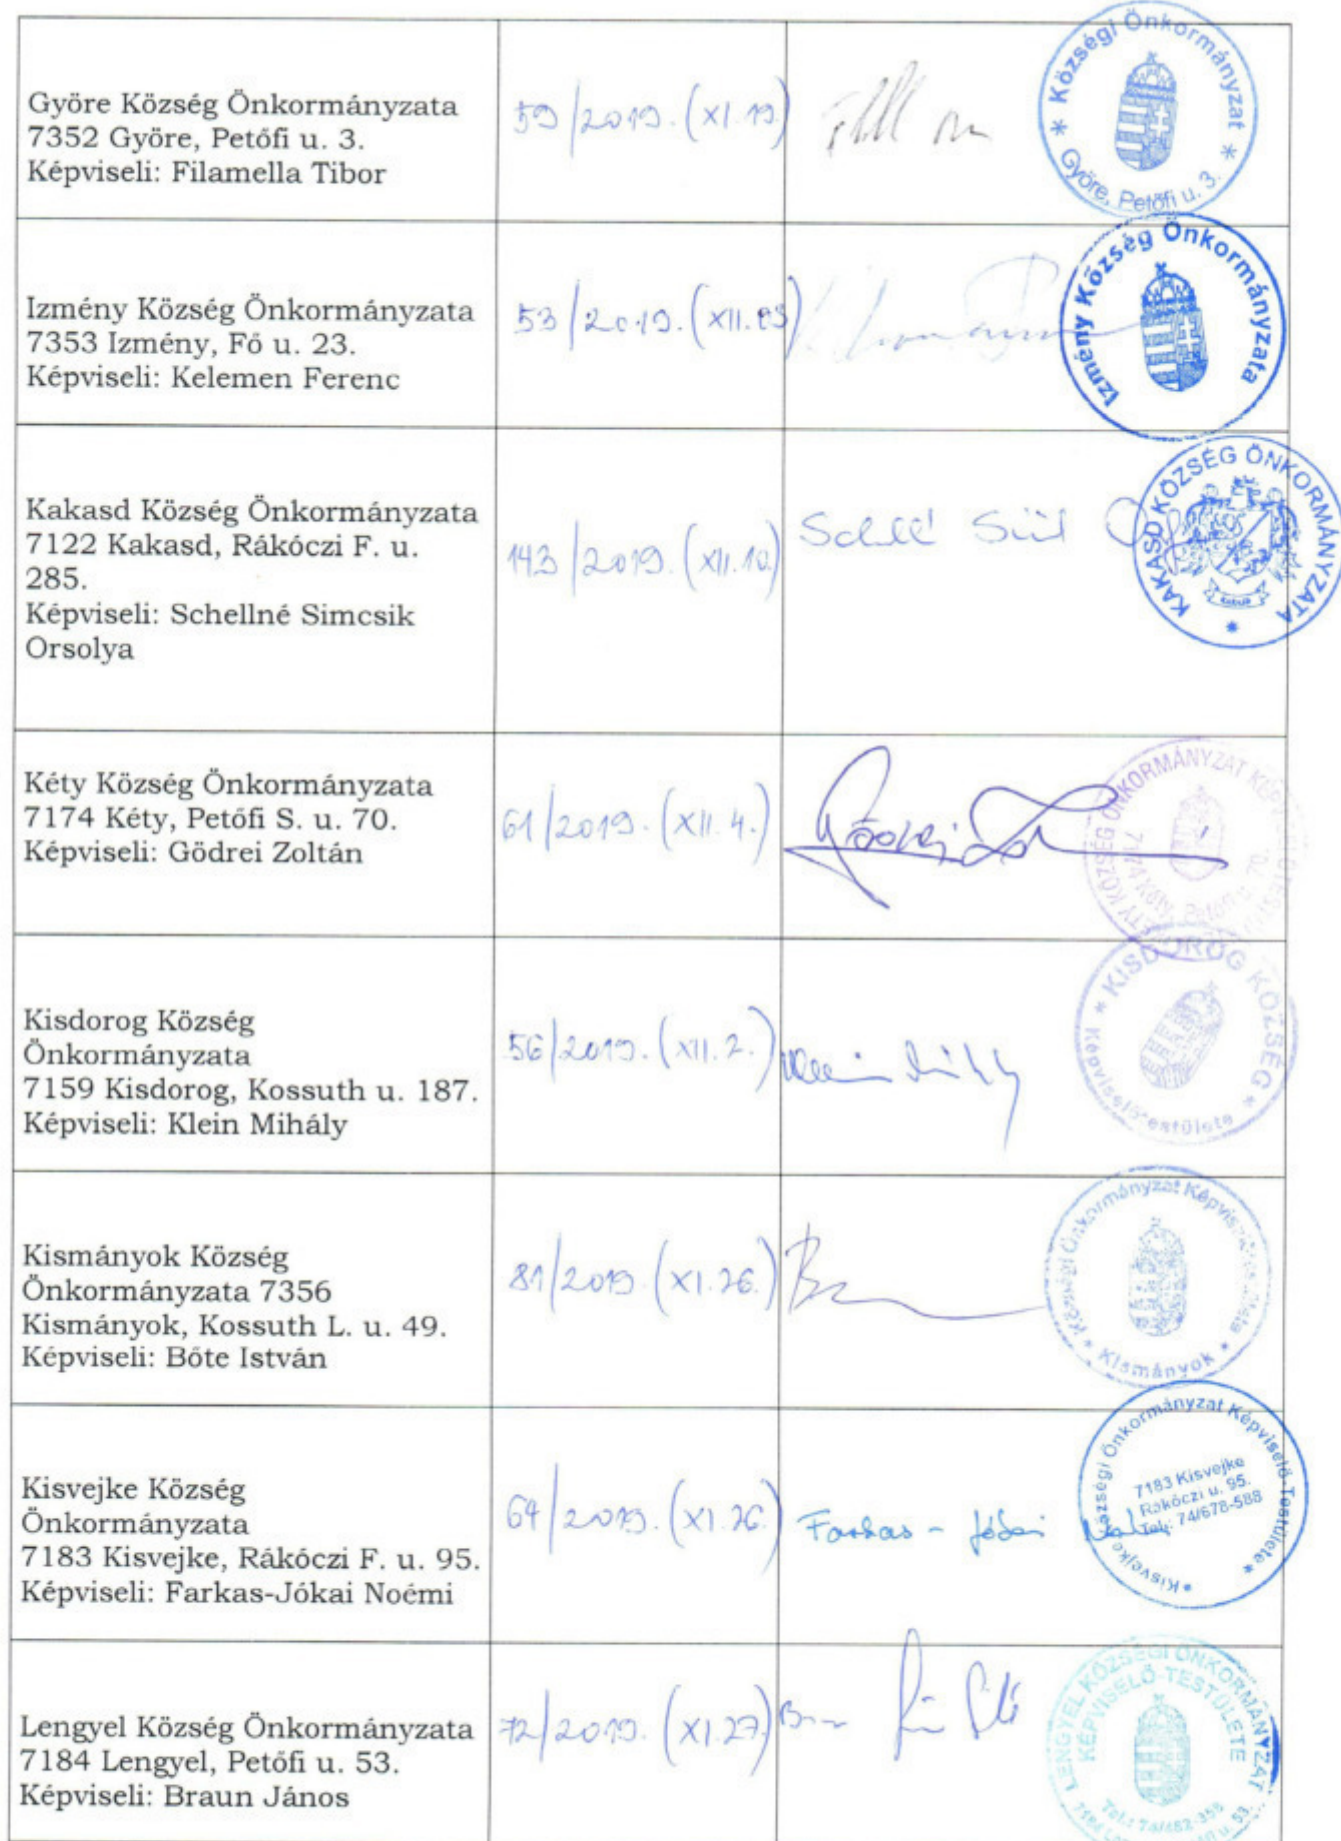 Györe Község Önkormányzata
7352 Györe, Petőfi u. 3.
Képviseli: Filamella Tibor
59/2019. (XI.19)
* Községi Önkormányzat *
Györe, Petőfi u. 3.
Izmény Község Önkormányzata
7353 Izmény, Fő u. 23.
Képviseli: Kelemen Ferenc
53/2019. (XII.03)
Izmény Község Önkormányzata
Kakasd Község Önkormányzata
7122 Kakasd, Rákóczi F. u.
285.
Képviseli: Schellné Simcsik
Orsolya
143/2019. (XII.10.)
KAKASD KÖZSÉG ÖNKORMÁNYZATA
*
Kéty Község Önkormányzata
7174 Kéty, Petőfi S. u. 70.
Képviseli: Gödrei Zoltán
61/2019. (XII.4.)
KÉTY KÖZSÉG ÖNKORMÁNYZAT
7174 Kéty, Petőfi u. 70.
Kisdorog Község
Önkormányzata
7159 Kisdorog, Kossuth u. 187.
Képviseli: Klein Mihály
56/2019. (XII.2.)
Klein Mihály
* KISDOROG KÖZSÉG *
Képviselőtestülete
Kismányok Község
Önkormányzata 7356
Kismányok, Kossuth L. u. 49.
Képviseli: Bőte István
81/2019. (XI.26.)
* Községi Önkormányzat
Kismányok *
Kisvejke Község
Önkormányzata
7183 Kisvejke, Rákóczi F. u. 95.
Képviseli: Farkas-Jókai Noémi
64/2019. (XI.26.)
Farkas-Jókai
*Kisvejke Községi Önkormányzat Képviselő-Testülete*
7183 Kisvejke
Rákóczi u. 95.
Tel.: 74/678-588
Lengyel Község Önkormányzata
7184 Lengyel, Petőfi u. 53.
Képviseli: Braun János
72/2019. (XI.27)
LENGYEL KÖZSÉGI ÖNKORMÁNYZAT
KÉPVISELŐ-TESTÜLETE